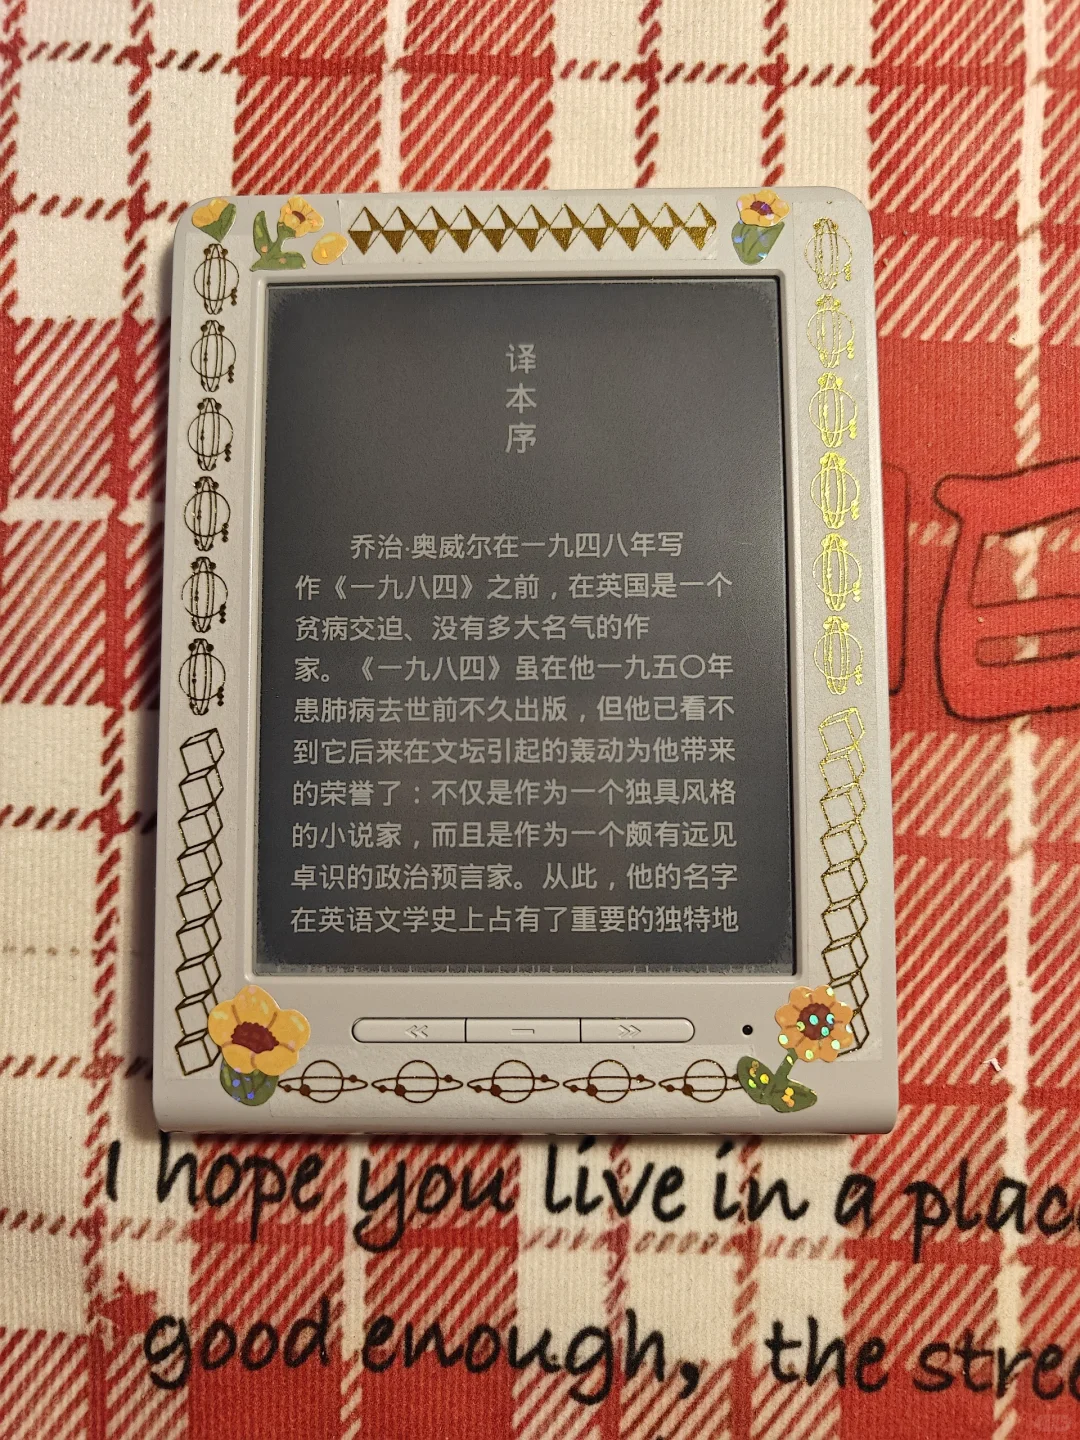 译
本
序
乔治·奥威尔在一九四八年写
作《一九八四》之前，在英国是一个
贫病交迫、没有多大名气的作
家。《一九八四》虽在他一九五〇年
患肺病去世前不久出版，但他已看不
到它后来在文坛引起的轰动为他带来
的荣誉了：不仅是作为一个独具风格
的小说家，而且是作为一个颇有远见
卓识的政治预言家。从此，他的名字
在英语文学史上占有了重要的独特地
I hope you live in a
good enough, the